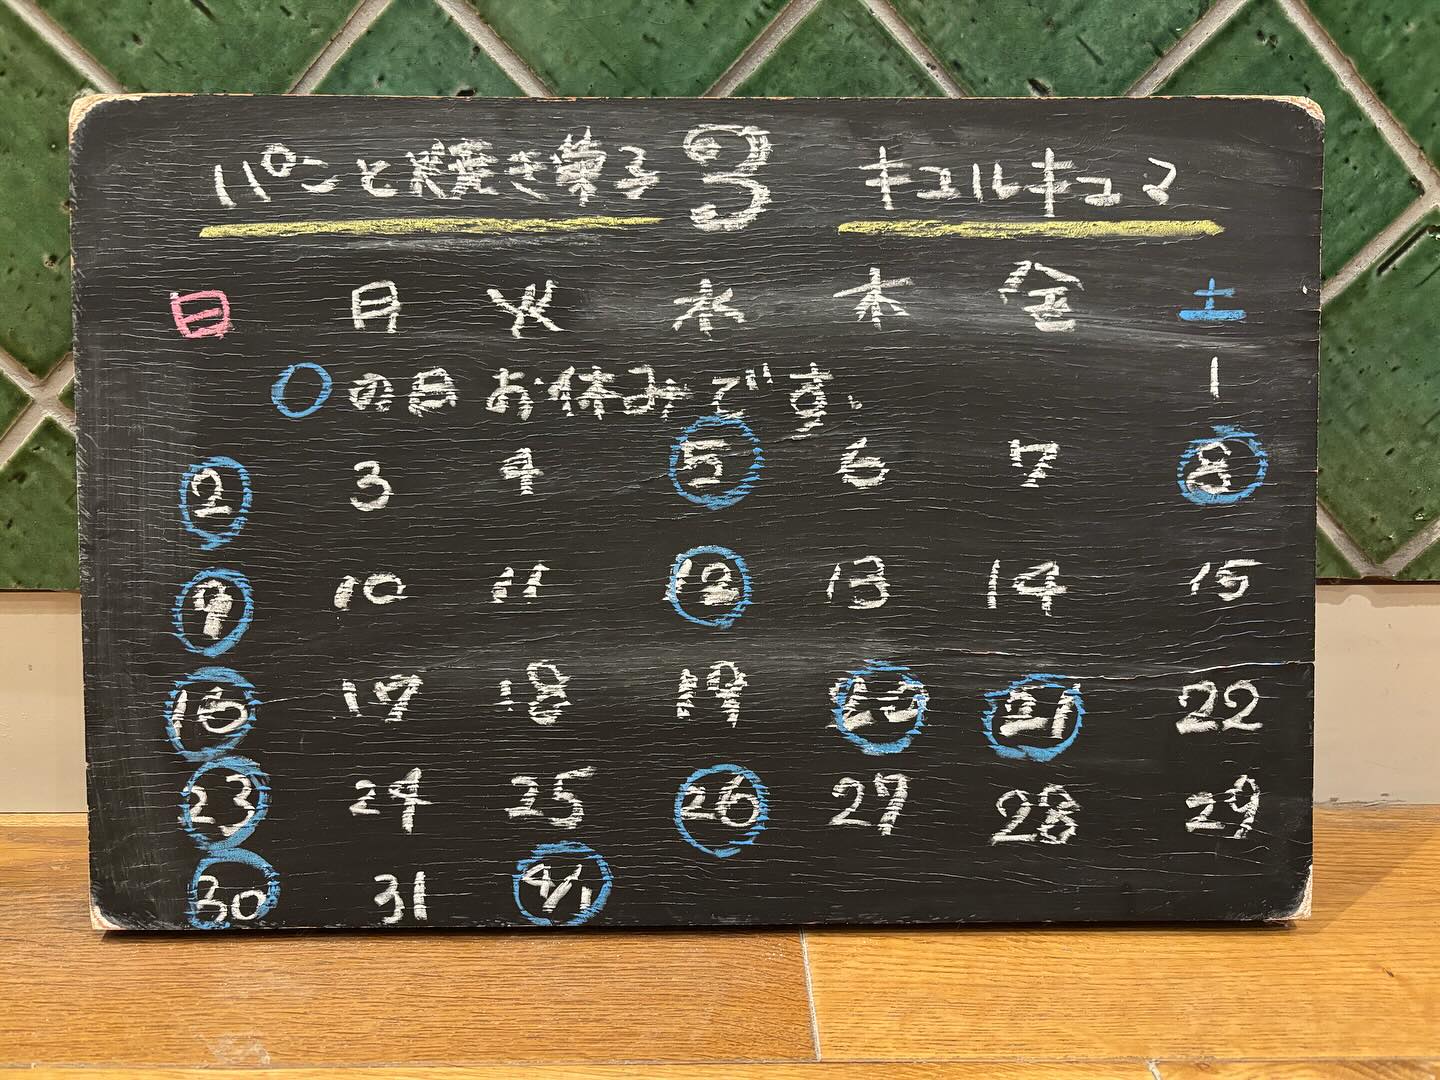 パンと焼き菓子 3 キュルキュマ
日 月 火 水 木 金 土
○の日お休みです。 1
2 3 4 5 6 7 8
9 10 11 12 13 14 15
16 17 18 19 20 21 22
23 24 25 26 27 28 29
30 31 4/1